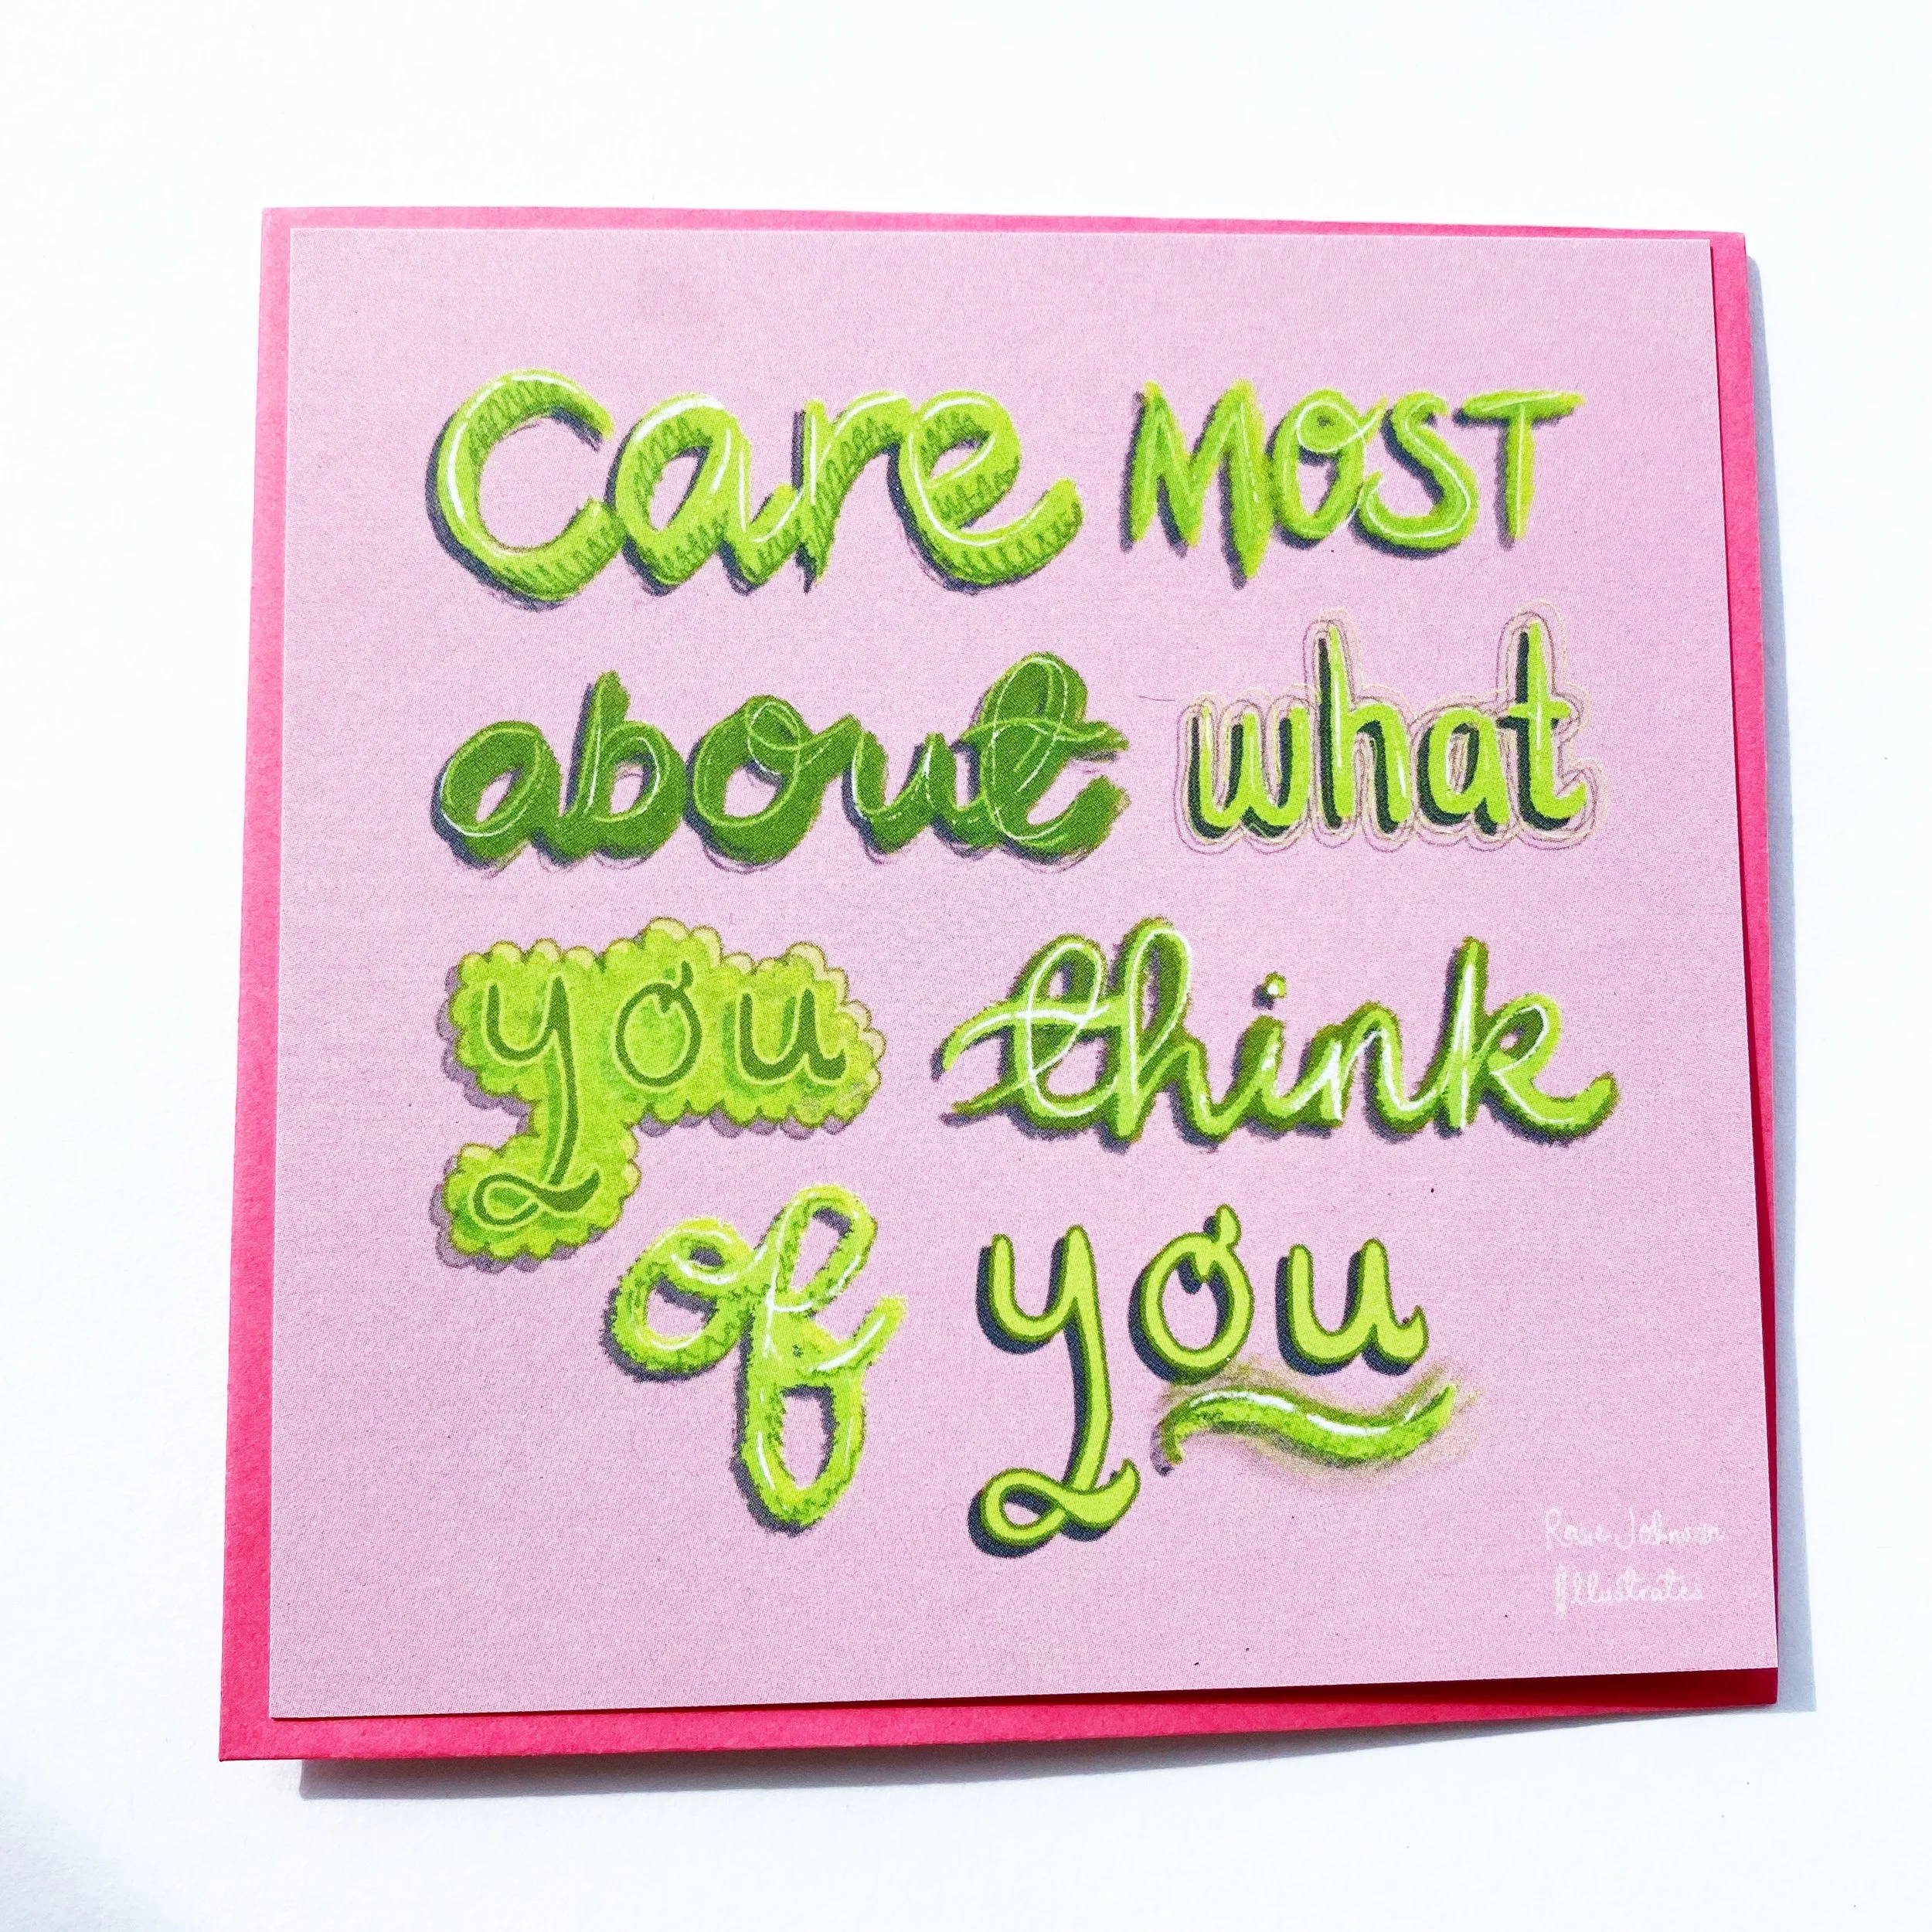 Care MOST
about what
you think
of you
Rosie Johnson
Illustrates